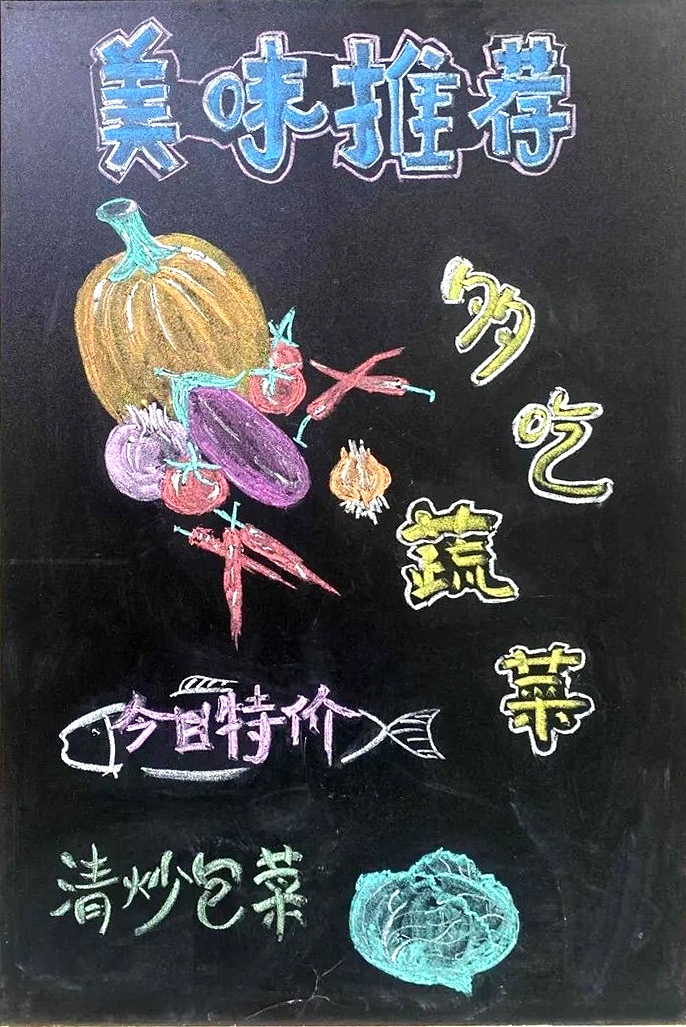 美味推荐
多吃蔬菜
今日特价
清炒包菜